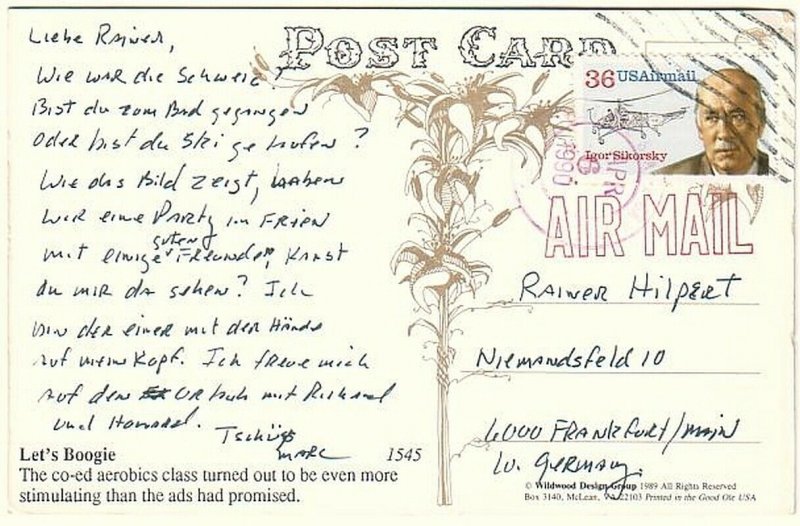 POST CARD
Liebe Rainer,
Wie war die Schweiz?
Bist du zom Bad gegangen
Oder bist du Ski gelaufen?
Wie das Bild zeigt, haben
wir eine Party im Frien
mit einige guten Freunden, Kanst
du mir da sehen? Ich
bin der einer mit den Hände
auf mein Kopf. Ich freue mich
auf den Urlaub mit Richard
und Howard.
Tschüss
MARC
Let's Boogie 1545
The co-ed aerobics class turned out to be even more
stimulating than the ads had promised.
36 USAirmail
Igor Sikorsky
APR
1990
AIR MAIL
Rainer Hilpert
Niemandsfeld 10
6000 FRANKFURT/MAIN
W. Germany.
© Wildwood Design Group 1989 All Rights Reserved
Box 3140, McLean, VA 22103 Printed in the Good Ole USA